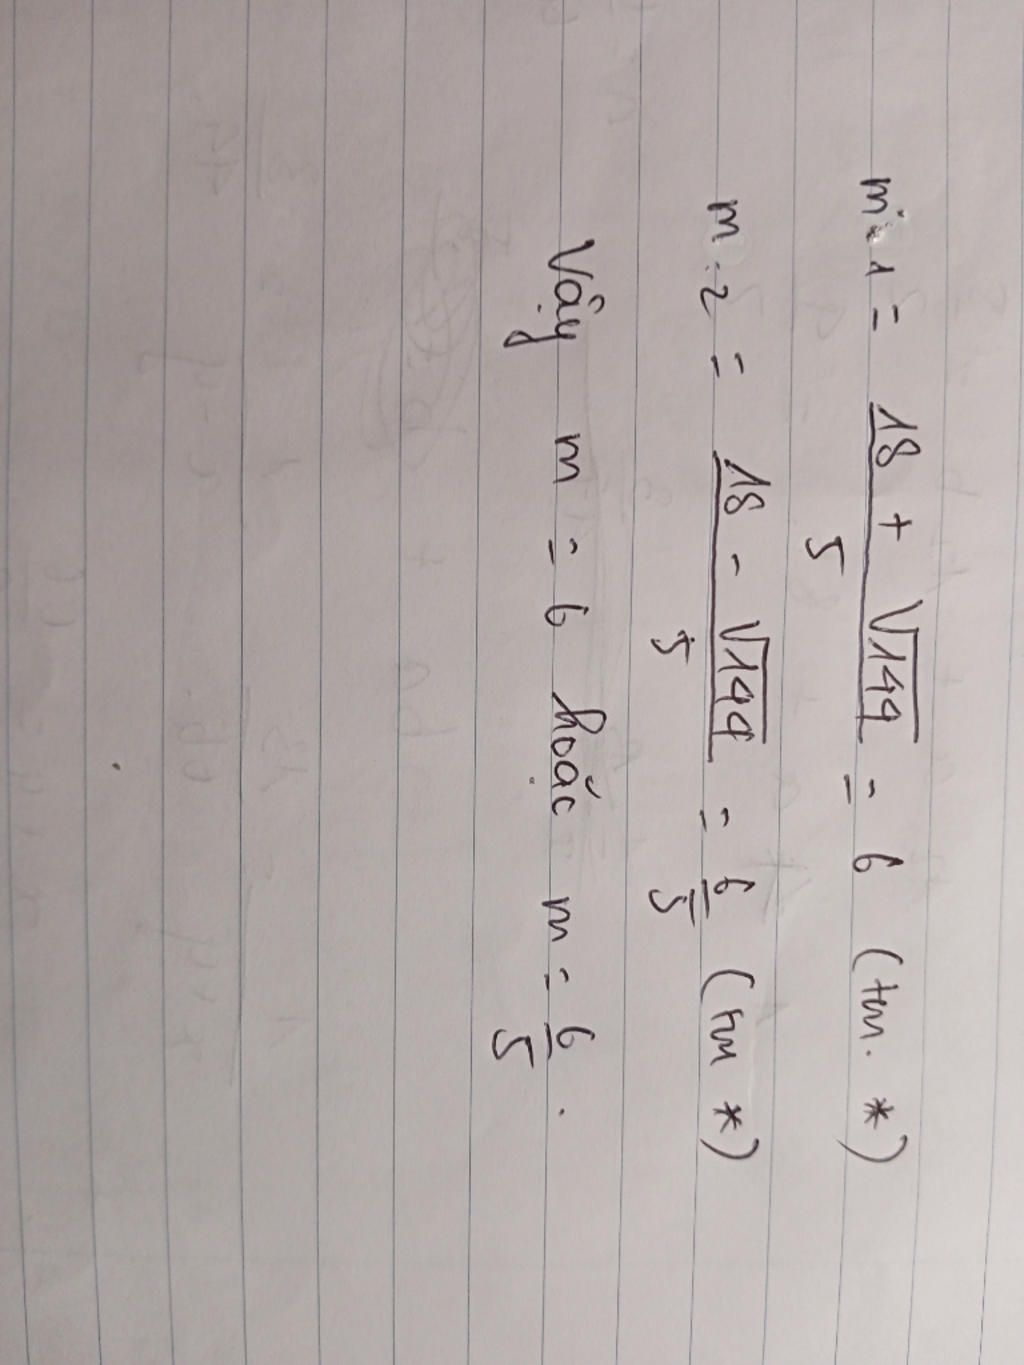 m₁ = (18 + √144)/5 = 6 (tm. *)
m₂ = (18 - √144)/5 = 6/5 (tm *)
Vậy m = 6 hoặc m = 6/5.